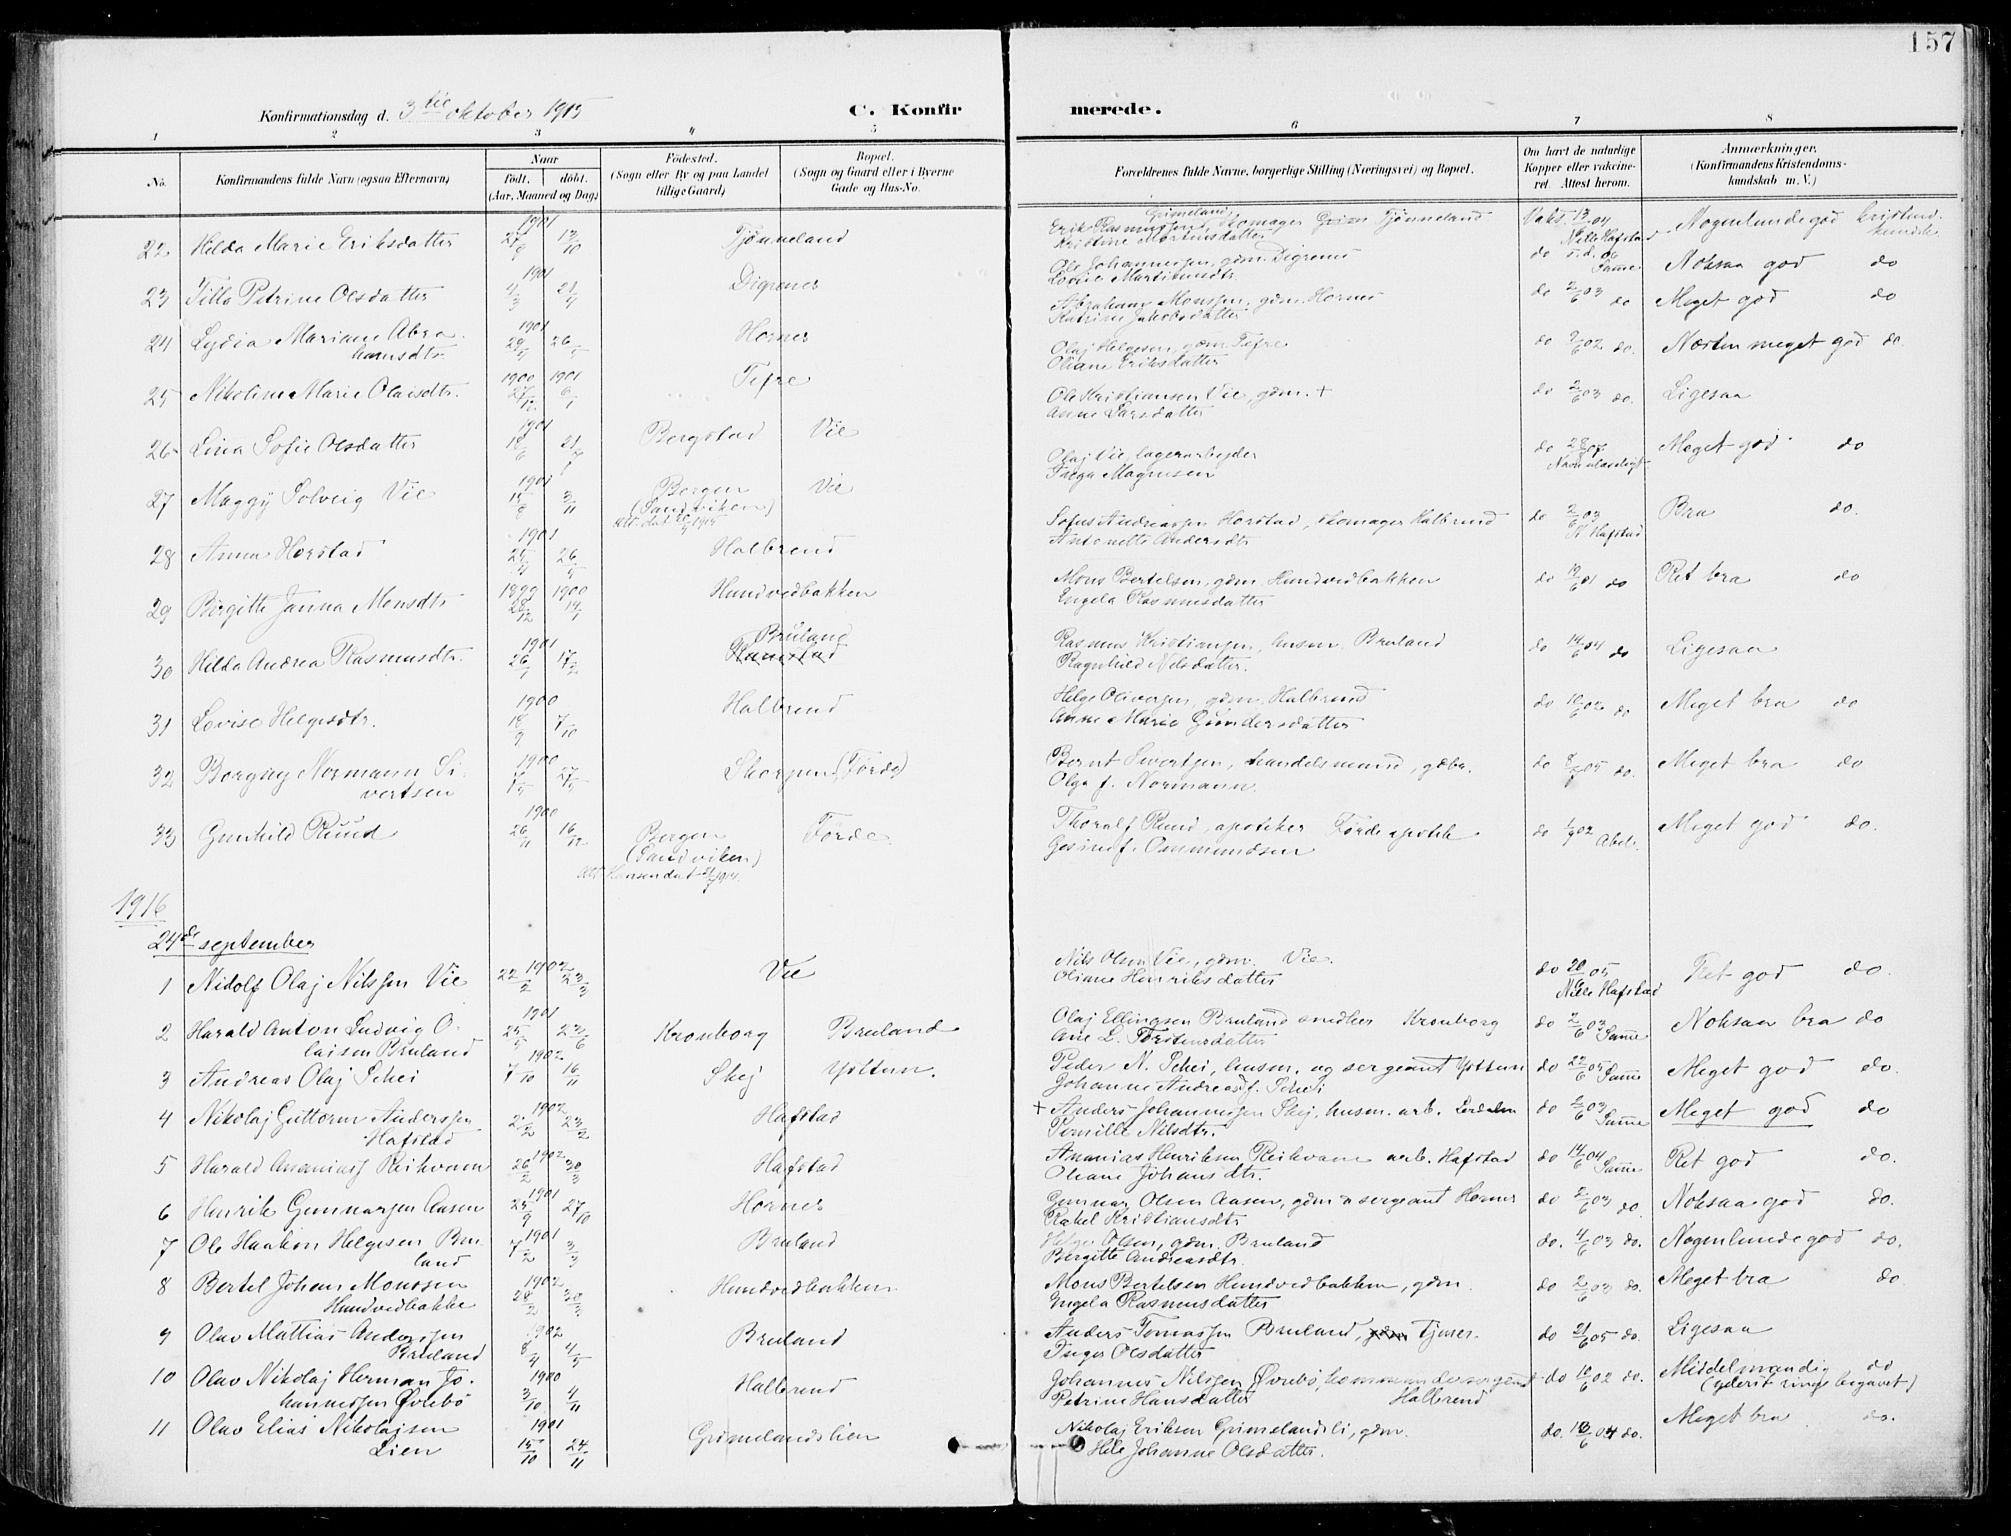 157
Konfirmationsdag d. 3die oktober 1915
C. Konfir merede.
1 2 3 4 5 6 7 8
No.
Konfirmandens fulde Navn (ogsaa Efternavn)
Naar
født, døbt.
(Aar, Maaned og Dag)
Fødested.
(Sogn eller By og paa Landet
tillige Gaard)
Bopæl.
(Sogn og Gaard eller i Byerne
Gade og Hus-No.
Forældrenes fulde Navne, borgerlige Stilling (Næringsvei) og Bopæl.
Om havt de naturlige
Kopper eller vakcine-
ret. Attest herom.
Anmærkninger.
(Konfirmandens Kristendoms-
kundskab m. V.)
22 Hilda Marie Eriksdatter 1901 27/9 13/10 Tjønneland
Erik Rasmussen Grimeland, skomager Tjønneland
Kristine Mortensdatter
Vaks. Nille Hafstad
Nogenlunde god kristend. kundsk.
23 Tilla Petrine Olsdatter 1901 4/3 21/4 Digernes
Ole Johannessen, gdm. Digernes
Lovise Martinusdtr
do Samme Noksaa god do
24 Lydia Mariane Abra-
hamsdtr. 1901 29/4 26/5 Hornes
Abraham Monssen, gdm. Hornes
Katrine Jakobsdatter
do 2/6 03 do Meget god do
25 Nikoline Marie Olaisdtr. 1900 27/12 1901 6/1 Tefre
Olaj Helgesen, gdm. Tefre
Oliane Eriksdatter
do 2/6 02 do. Næsten meget god do.
26 Lina Sofie Olsdatter 1901 18/6 21/7 Bergstad Vie
Ole Kristiansen Vie, gdm. +
Anne Larsdatter
do 2/6 03 do. Ligesaa
27 Maggy Solveig Vie 1901 15/8 3/11 Bergen
(Sandviken) Vie
Olaj Vie, lagerarbejder
Inga Magnusen
do 28/ 07 Navn ulæseligt Meget god do
28 Anna Horstad 1901 25/4 26/5 Halbrend
Sofus Andreassen Horstad, skomager Halbrend
Antonette Andersdtr
do 2/6 03 N Hafstad Bra do.
29 Birgitte Janna Monsdtr 1899 28/12 1900 14/1 Hundvedbakken
Mons Bertelsen, gdm. Hundvedbakken
Engela Rasmusdatter
do 19/6 01 do Ret bra do
30 Hilda Andrea Rasmusdtr. 1901 26/1 17/2 Bruland
Rasmus Kristiansen, husm. Bruland
Ragnhild Nilsdatter.
do 14/6 04 do Ligesaa
31 Lovise Helgesdtr. 1900 18/9 7/10 Halbrend
Helge Oliversen, gdm. Halbrend
Anne Marie Gundersdatter
do 10/6 02 do Meget bra do
32 Borgny Normann Si-
vertsen 1900 7/5 27/5 Skorpen (Førde)
Bernt Sivertsen, handelsmand, gdbr.
Olga f. Normann.
do 05 do. Meget bra do
33 Gunhild Ruud 1900 26/11 16/12 Bergen
(Sandviken) Førde
att Hansen dat 1914.
Thoralf Ruud, apoteker Førde apotek
Gesine f. Osmundsen
do 02 Abel. Meget god do.
1916
24de september
1 Nidolf Olaj Nilssen Vie 1902 22/2 23/3 Vie
Nils Olsen Vie, gdm. Vie.
Oliane Henriksdatter
do 20/6 05 Nille Hafstad Ret god do.
2 Harald Anton Ludvig O-
laisen Bruland 1901 25/5 23/6 Kronborg Bruland
Olaj Ellingsen Bruland snedker Kronborg
Ane L. Torstensdatter
do 2/6 03 Samme Noksaa bra do
3 Andreas Olaj Schei 1902 7/10 16/11 Skej Ysttun.
Peder N. Schei, husm. og sergeant Ysttun
Johanne Andreasd. Schei
do 22/6 05 Samme Meget god do.
4 Nikolaj Guttorm Anderssen
Hafstad 1902 2/2 23/2 Hafstad
+ Anders Johannessen Skej, husm. arb.
Pernille Nilsdtr.
do 2/6 03 Samme Meget god do
5 Harald Ananiass Reikvam 1902 26/2 30/3 Hafstad
Ananias Henriksen Reikvam arb. Hafstad
Oliane Johansdtr.
do 14/6 04 Samme Ret god do.
6 Henrik Gunnarsen Aasen 1901 25/9 27/10 Hornes
Gunnar Olsen Aasen, gdm. o sergeant Hornes
Rakel Kristiansdtr
do 2/6 03 do. Noksaa god do.
7 Ole Haakon Helgesen Bru-
land 1901 7/2 3/3 Bruland
Helge Olsen, gdm. Bruland
Bergitte Andreasdtr.
do. 4/6 03 do. Nogenlunde god do.
8 Bertel Johan Monssen
Hundvedbakke 1902 28/2 30/3 Hundvedbakken
Mons Bertelsen Hundvedbakken, gdm.
Engela Rasmusdatter
do 2/6 03 do. Meget bra do
9 Olav Mattias Anderssen
Bruland 1902 8/4 4/5 Bruland
Anders Tomassen Bruland, gdm tjener.
Inger Olsdatter
do 21/6 05 do. Ligesaa
10 Olav Nikolaj Herman Jo-
hannessen Øvrebø 1900 3/10 4/11 Halbrend
Johannes Nilssen Øvrebø, kommandersergeant
Petrine Hansdatter Halbrend
do 10/6 02 do. Middelmaadig do
(yderst ringe begavet)
11 Olav Elias Nikolajsen
Lien 1901 15/10 24/11 Grimelandslien
Nikolaj Eriksen Grimelandsli, gdm.
Hele Johanne Olsdatter.
do. 10/6 04 do. Meget bra do.